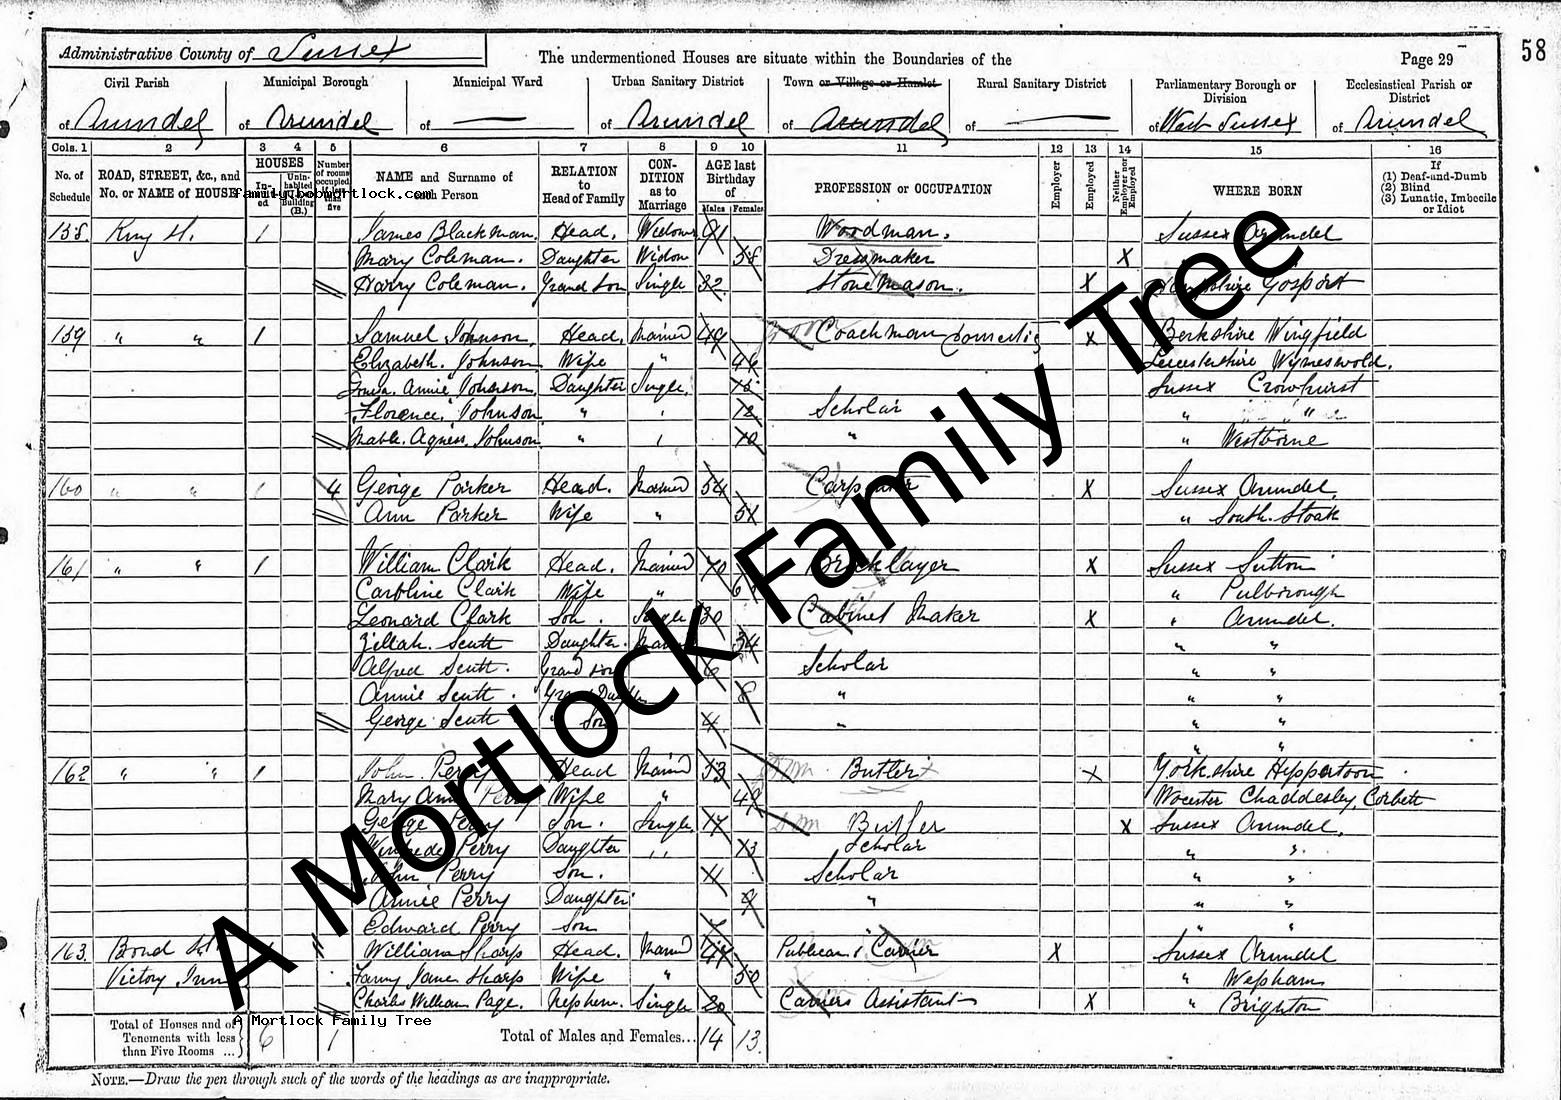 Administrative County of Sussex
The undermentioned Houses are situate within the Boundaries of the
Page 29
58
Civil Parish Municipal Borough Municipal Ward Urban Sanitary District Town or Village or Hamlet Rural Sanitary District Parliamentary Borough or Division Ecclesiastical Parish or District
of Arundel of Arundel of — of Arundel of Arundel of — of West Sussex of Arundel
Cols. 1 2 3 4 5 6 7 8 9 10 11 12 13 14 15 16
No. of Schedule ROAD, STREET, &c., and No. or NAME of HOUSE HOUSES In- ed Unin-habited Building (B.) Number of rooms occupied if less than five NAME and Surname of each Person RELATION to Head of Family CON-DITION as to Marriage AGE last Birthday of Males Females PROFESSION or OCCUPATION Employer Employed Neither Employer nor Employed WHERE BORN If (1) Deaf-and-Dumb (2) Blind (3) Lunatic, Imbecile or Idiot
family.bobmortlock.com
158. King St. 1 James Blackman. Head. Widower 81 Woodman. Sussex Arundel
Mary Coleman. Daughter Widow 58 Dressmaker X
Harry Coleman. Grand Son Single 32 Stone Mason. X Hampshire Gosport
159 " " 1 Samuel Johnson. Head. Married 49 Coachman Domestic X Berkshire Wingfield
Elizabeth. Johnson Wife " 46 Leicestershire Wymeswold.
Annie Johnson. Daughter Single. 15 Sussex Crowhurst
Florence. Johnson " 12 Scholar " "
Agness. Johnson. " 10 " " Westborne
160 " " 1 4 George Parker Head. Married 54 Carpenter X Sussex Arundel.
Ann Parker Wife " 51 " South. Stoak
161 " " 1 William Clark Head. Married 70 Bricklayer X Sussex Sutton
Caroline Clark Wife " " Pulborough
Leonard Clark Son. Single 30 Cabinet Maker X " Arundel.
Zillah. Scutt Daughter. Married 34 " "
Alfred Scutt. Grand Son 6 Scholar " "
Annie Scutt. Grand Daughter 8 " " "
George Scutt " Son 4 " " "
" "
162 " " 1 John. Perry Head Married 53 Butler X Yorkshire
Mary Ann Perry Wife " 49 Worcester Chaddesley Corbett
George Perry Son. Single. 17 Butler X Sussex Arundel.
Winifrede Perry Daughter " 13 Scholar " "
John Perry Son. 11 Scholar " "
Annie Perry Daughter 9 " " "
Edward Perry Son 7 " " "
163. Bond St. 1 William Sharp Head. Married 47 Publican & Carrier X Sussex Arundel
Victory Inn Fanny Jane Sharp Wife " 50 " Wepham
Charles William Page. Nephew. Single 20 Carriers Assistant X " Brighton
Total of Houses and of Tenements with less than Five Rooms ... 6 1 Total of Males and Females... 14 13.
A Mortlock Family Tree
NOTE.—Draw the pen through such of the words of the headings as are inappropriate.
A Mortlock Family Tree